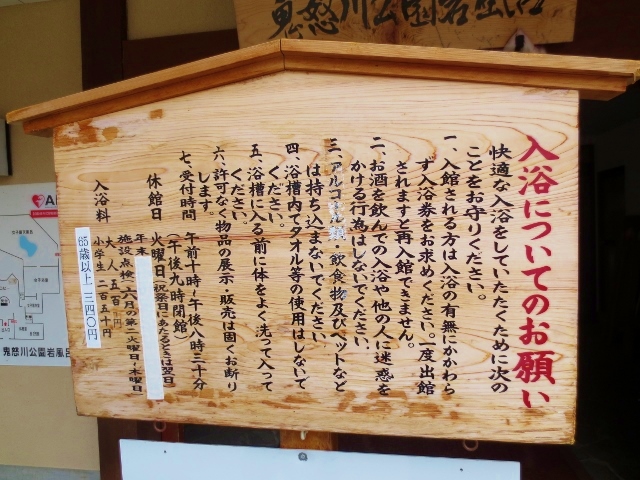 鬼怒川公園岩風呂
入浴についてのお願い
快適な入浴をしていただくために次の
ことをお守りください。
一、入館される方は入浴の有無にかかわら
ず入浴券をお求めください。一度出館
されますと再入館できません。
二、お酒を飲んでの入浴や他の人に迷惑を
かける行為はしないでください。
三、アルコール類、飲食物及びペットなど
は持ち込まないでください
四、浴槽内でタオル等の使用はしないで
ください。
五、浴槽に入る前に体をよく洗って入って
ください。
六、許可なく物品の展示・販売は固くお断り
します。
七、受付時間 午前十時~午後八時三十分
(午後九時閉館)
休館日 火曜日(祝祭日にあたるときは翌日
年末
施設点検(六月の第二火曜日・木曜日
入浴料 大人 五百円
小学生 二百五十円
65歳以上 三四〇円
鬼怒川公園岩風呂